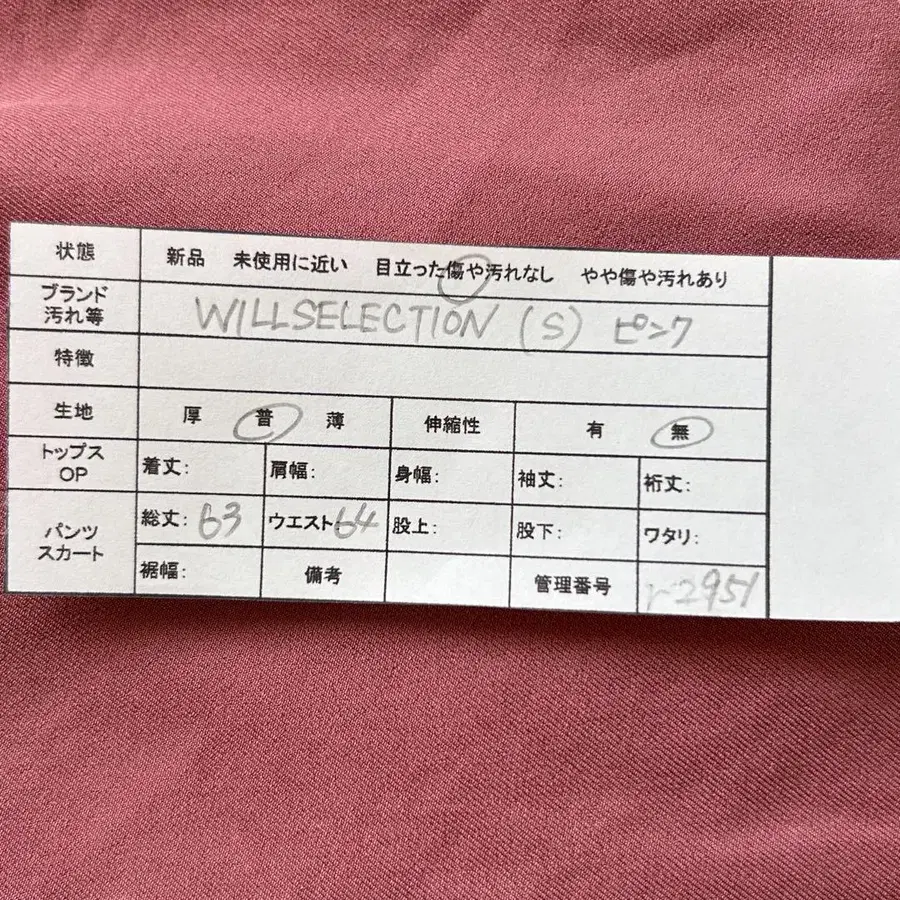 状態 新品 未使用に近い 目立った傷や汚れなし やや傷や汚れあり
ブランド
汚れ等 WILLSELECTION (S) ピンク
特徴
生地 厚 普 薄 伸縮性 有 無
トップス
OP 着丈: 肩幅: 身幅: 袖丈: 裄丈:
パンツ
スカート 総丈: 63 ウエスト: 64 股上: 股下: ワタリ:
裾幅: 備考 管理番号 r-2951